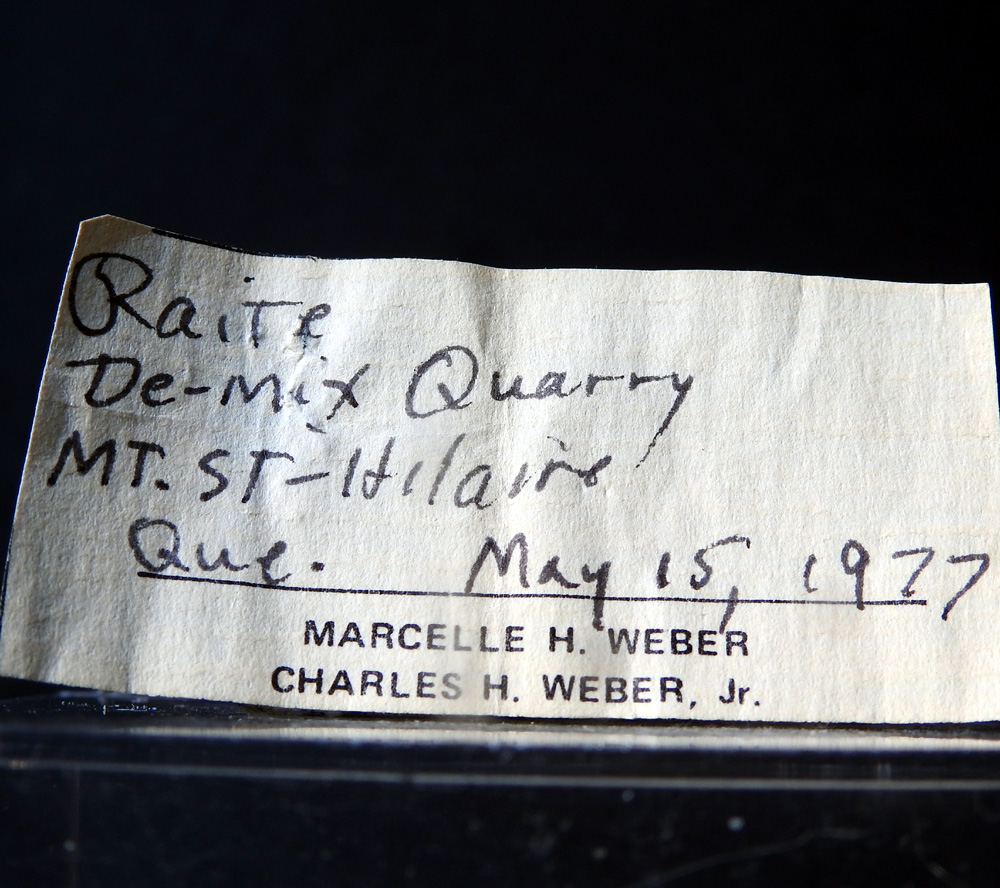 Raite
De-mix Quarry
MT. ST-Hilaire
Que. May 15, 1977
MARCELLE H. WEBER
CHARLES H. WEBER, Jr.